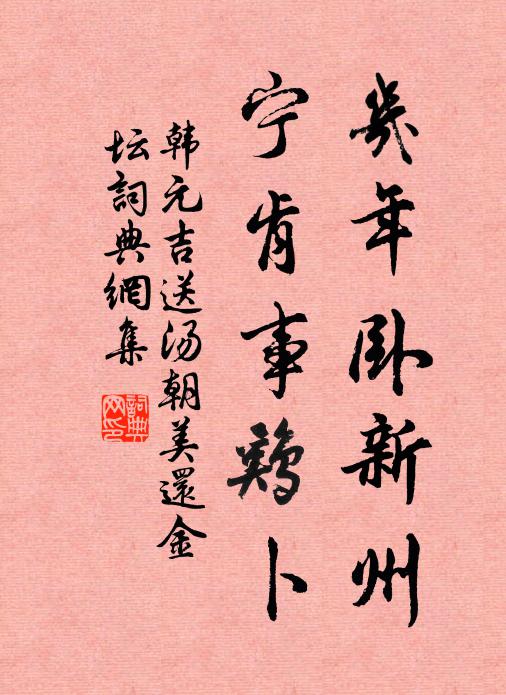 幾年卧新州
宁肯事鷄卜
韩元吉送汤朝美還金
坛詞典網集
詞典網印